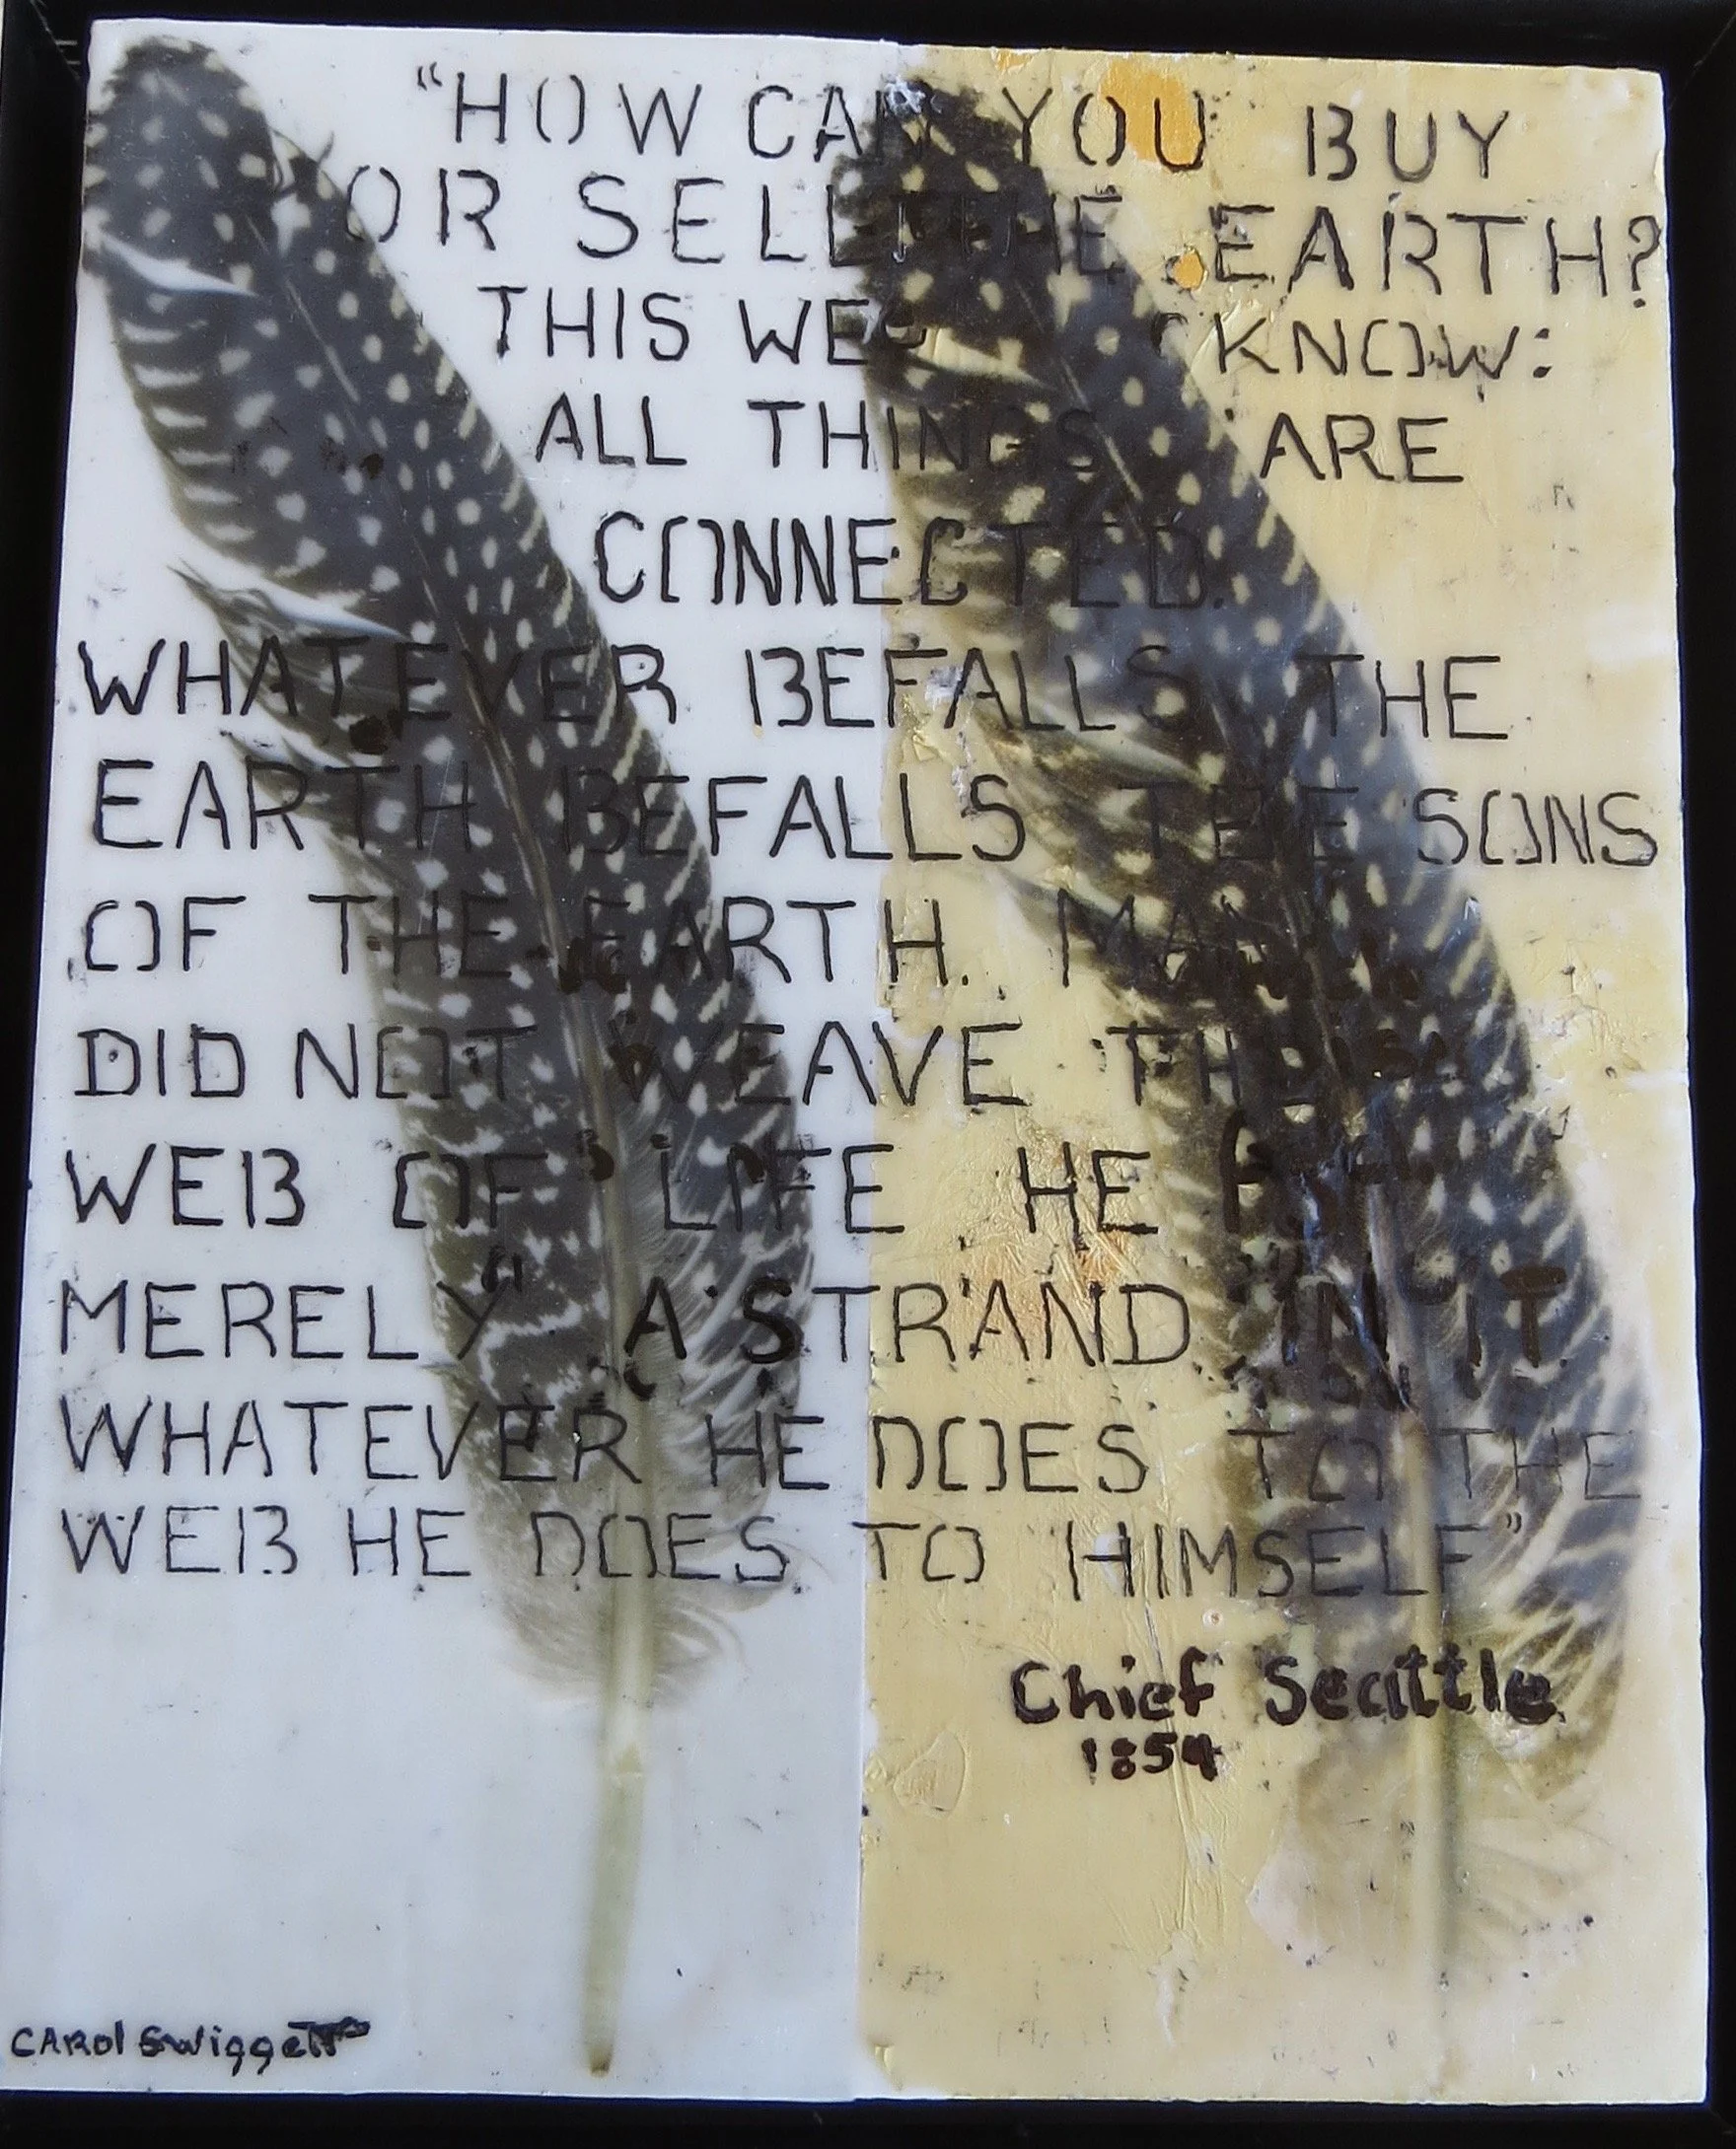 "HOW CAN YOU BUY
OR SELL THE EARTH?
THIS WE KNOW:
ALL THINGS ARE
CONNECTED.
WHATEVER BEFALLS THE
EARTH BEFALLS THE SONS
OF THE EARTH. MAN
DID NOT WEAVE THE
WEB OF LIFE HE
MERELY A STRAND IN IT.
WHATEVER HE DOES TO THE
WEB HE DOES TO HIMSELF"
Chief Seattle
1854
CAROl Swiggett